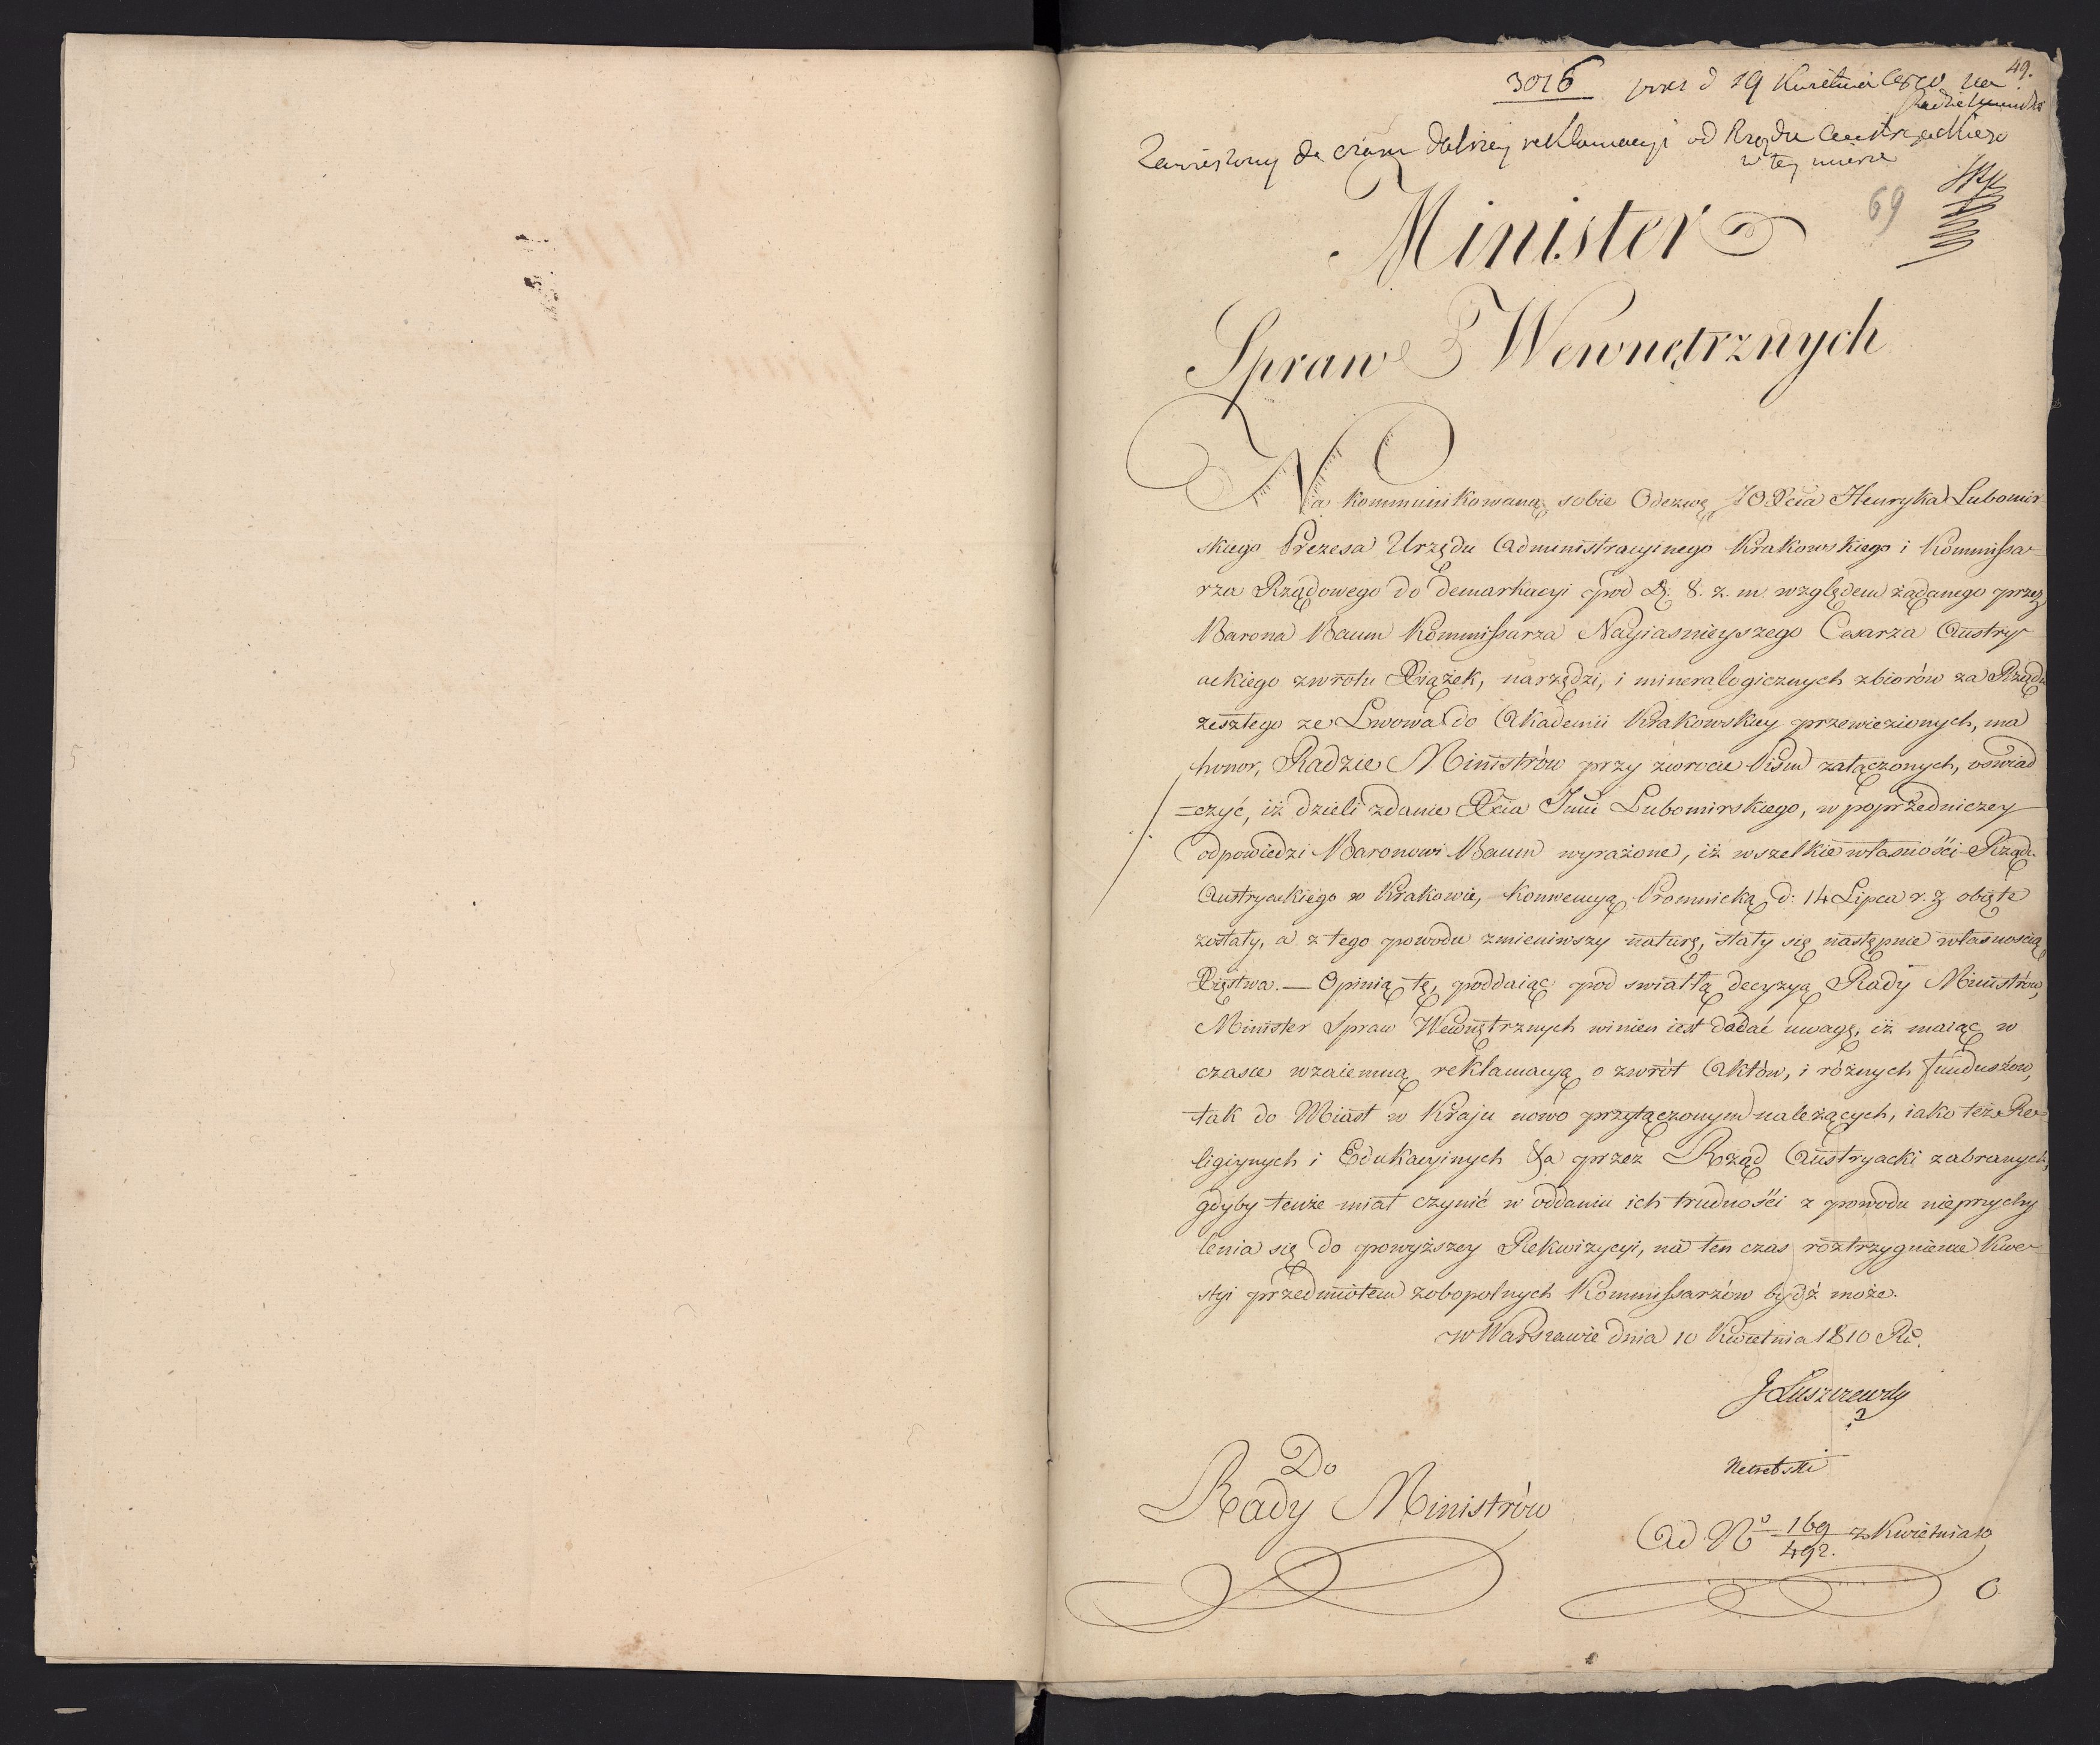 49.
3016 d 19 Kwietnia 1810 na
Radzie
Zawieszony do czasu dalszey reklamacyi od Rządu Austryackiego
w tey mierze
69
Minister
Spraw Wewnętrznych
Na kommunikowaną sobie Odezwę JO Xcia Henryka Lubomir
skiego Prezesa Urzędu Administracyinego Krakowskiego i Kommissa-
rza Rządowego do demarkacyi pod D. 8. z. m. względem żądanego przez
Barona Baum Kommissarza Nayiasnieyszego Cesarza Austry
ackiego zwrotu Xiążek, narzędzi, i mineralogicznych zbiorów za Rządu
zeszłego ze Lwowa do Akademii Krakowskiey przewiezionych, ma
honor, Radzie Ministrów przy zwrocie Pism załączonych, oświad
=czyć, iż dzieli zdanie Xcia Jmci Lubomirskiego, w poprzedniczey
odpowiedzi Baronowi Baum wyrażone, iż wszelkie własności Rządu
Austryackiego w Krakowie, Konwencyą Promnicką d: 14 Lipca r. z. obięte
zostały, a z tego powodu zmieniwszy naturę, stały się następnie własnością
Xięstwa. — Opinią tę, poddaiąc pod swiatłą decyzyą Rady Ministrów,
Minister Spraw Wewnętrznych winien iest dodać uwagę, iż maiąc w
czasie wzaiemną reklamacyą o zwrót Aktów, i różnych funduszów,
tak do Miast w Kraju nowo przyłączonym należących, iako też Re-
ligiynych i Edukacyinych &a przez Rząd Austryacki zabranych,
gdyby tenże miał czynić w oddaniu ich trudności z powodu nieprzychy
lenia się do powyższey Rekwizycyi, na ten czas roztrzygnienie Kwe-
styi przedmiotem zobopolnych Kommissarzów bydź może.
w Warszawie dnia 10 Kwietnia 1810 Ru.
J Łuszczewski
Do
Rady Ministrów
Ad No 169/492. z Kwietnia